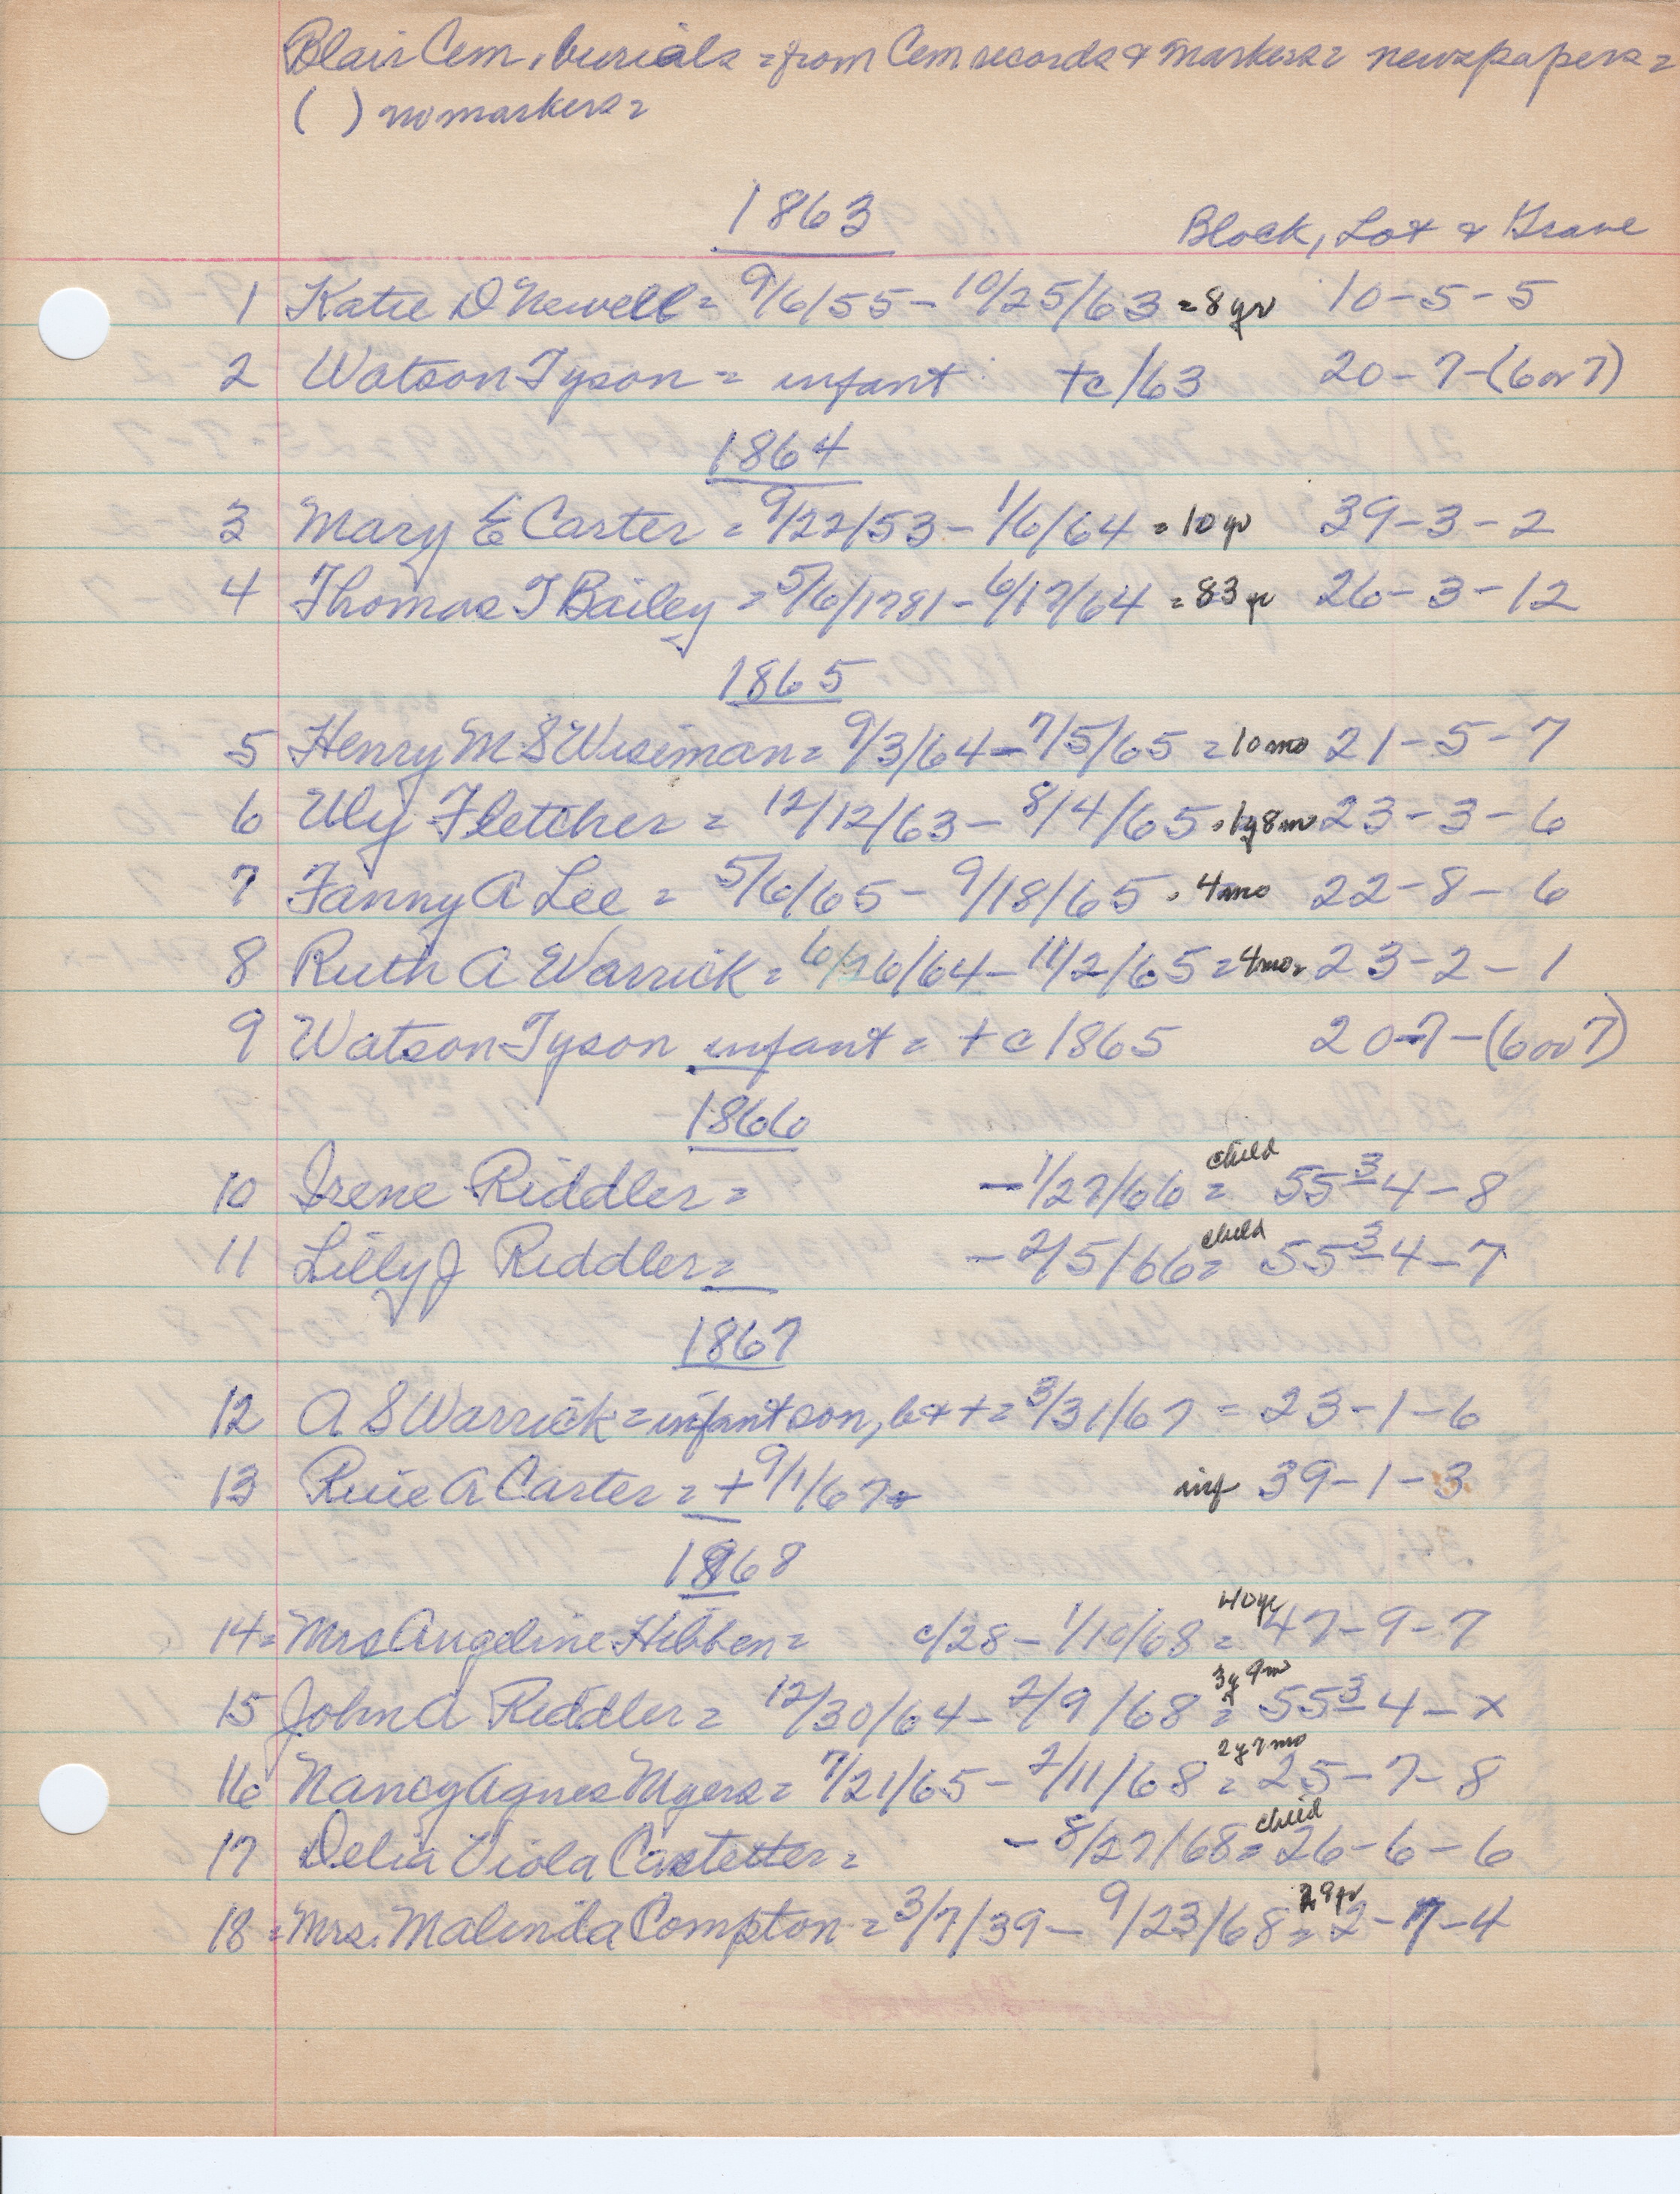 Blair Cem. burials = from Cem records & markers = newspapers =
( ) no markers =
1863 Block, Lot & Grave
1 Katie D Newell = 9/6/55 - 10/25/63 = 8 yr 10-5-5
2 Watson Tyson = infant +c/63 20-7-(6 or 7)
1864
3 Mary E Carter = 9/22/53 - 1/6/64 = 10 yr 39-3-2
4 Thomas T Bailey = 5/6/1781 - 6/17/64 = 83 yr 26-3-12
1865
5 Henry M S Wiseman = 9/3/64 - 7/5/65 = 10 mo 21-5-7
6 Uly Fletcher = 12/12/63 - 8/14/65 . 1y 8m 23-3-6
7 Fanny A Lee = 5/6/65 - 9/18/65 . 4 mo 22-8-6
8 Ruth A Warrick = 6/26/64 - 11/2/65 = 4 mo = 23-2-1
9 Watson Tyson infant = +c 1865 20-7-(6 or 7)
1866
10 Irene Riddler = - 1/27/66 = child 55 3-4-8
11 Lilly J Riddler = - 2/5/66 = child 55 3-4-7
1867
12 A S Warrick = infant son, b & + = 3/31/67 = 23-1-6
13 A Carter = + 9/1/67 = inf 39-1-3
1868
14 = Mrs Angeline Hibben = c/28 - 1/10/68 = 40 yr 47-9-7
15 John A Riddler = 12/30/64 - 2/9/68 = 3y 9m 55 3-4-x
16 Nancy Agnes Myers = 7/21/65 - 2/11/68 = 2y 7 mo 25-7-8
17 Delia Viola Castetter = - 8/27/68 = child 26-6-6
18 = Mrs. Malinda Compton = 3/7/39 - 9/23/68 = 29 yr 2-7-4